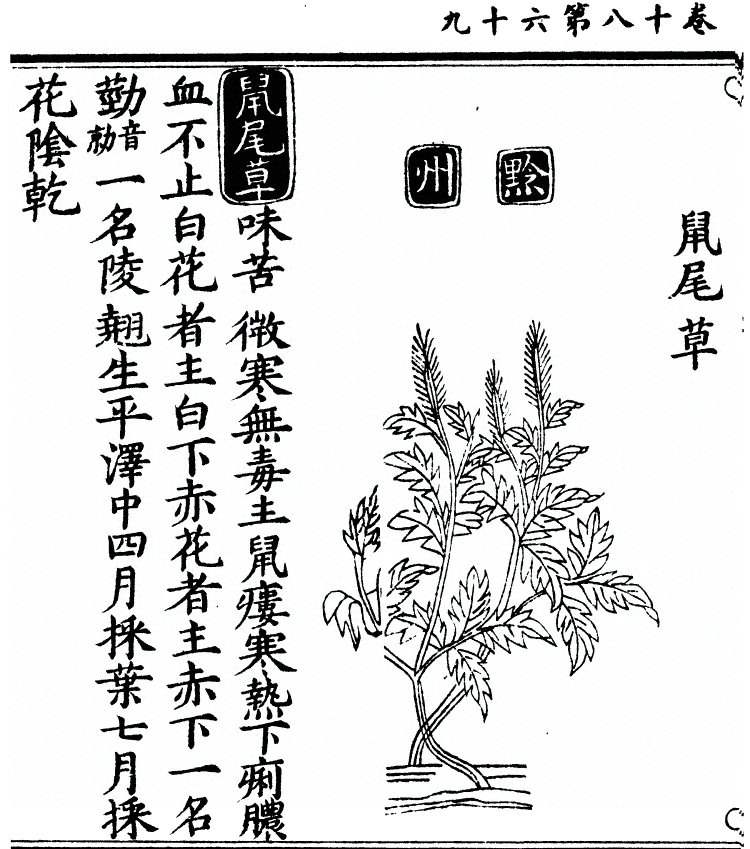 卷十八第六十九
鼠尾草
黔州
鼠尾草味苦微寒無毒主鼠瘻寒熱下痢膿
血不止白花者主白下赤花者主赤下一名
葝音勍一名陵翹生平澤中四月採葉七月採
花陰乾